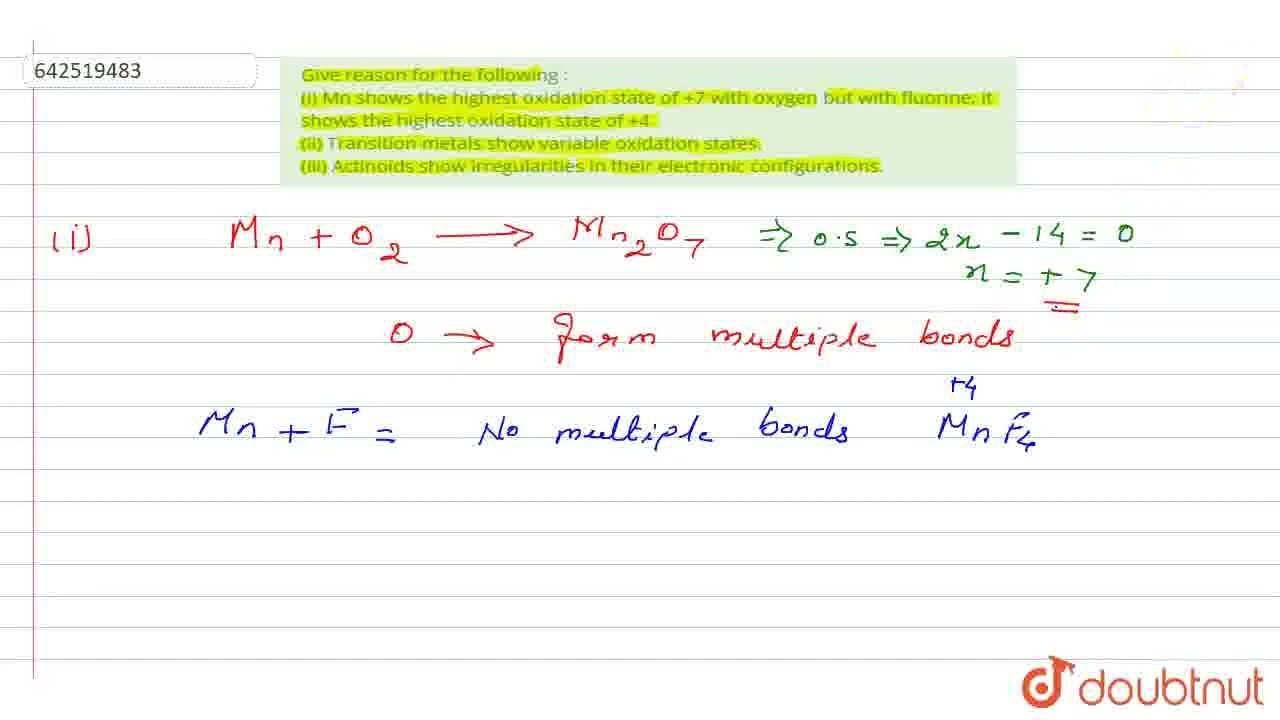 642519483
Give reason for the following :
(i) Mn shows the highest oxidation state of +7 with oxygen but with fluorine, it
shows the highest oxidation state of +4.
(ii) Transition metals show variable oxidation states.
(iii) Actinoids show irregularities in their electronic configurations.
(i) Mn + O2 ⟶ Mn2O7 ⇒ O.S ⇒ 2x - 14 = 0
x = + 7
O → form multiple bonds
+4
Mn + F = No multiple bonds MnF4
doubtnut